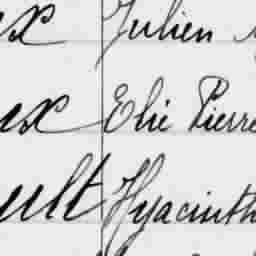 ex Julien
ex Elie Pierre
ult Hyacinth